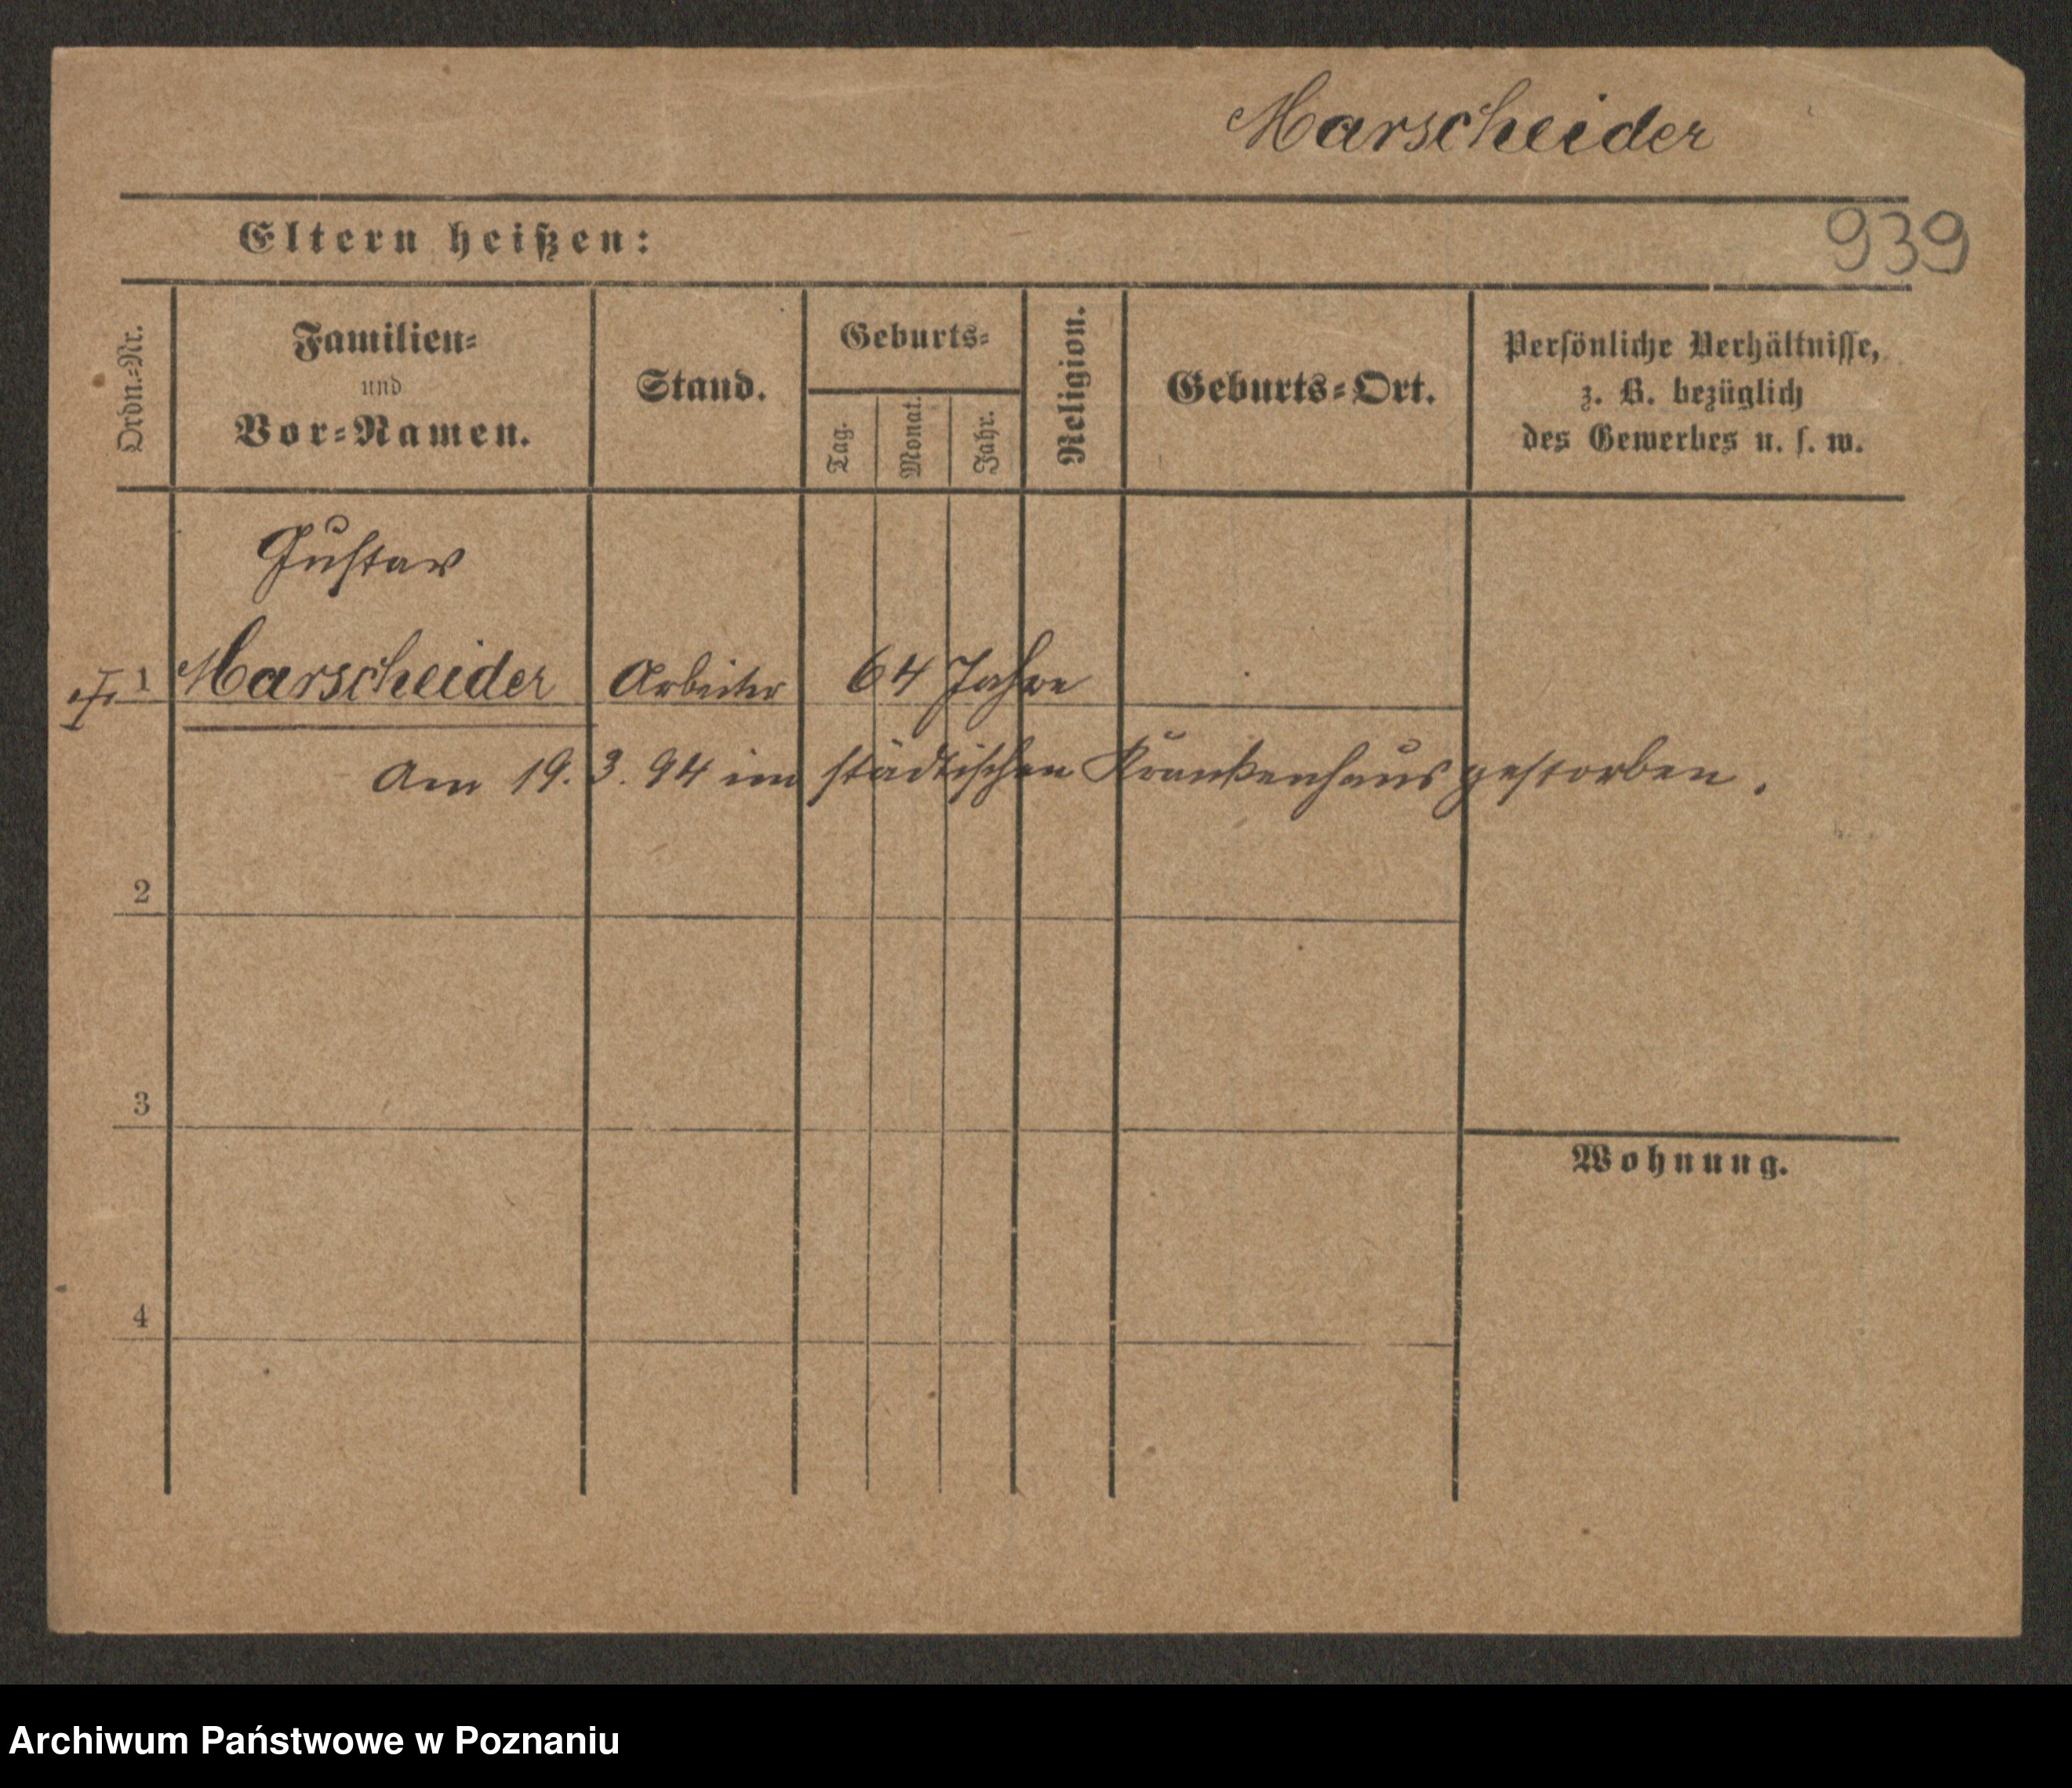 Marscheider
Eltern heißen:
939
Ordn.=Nr.
Familien=
und
Vor=Namen.
Stand.
Geburts=
Tag.
Monat.
Jahr.
Religion.
Geburts=Ort.
Persönliche Verhältnisse,
z. B. bezüglich
des Gewerbes u. s. w.
Gustav
1 Marscheider Arbeiter 64 Jahre
Am 19. 3. 94 im städtischen Krankenhaus gestorben.
2
3
Wohnung.
4
Archiwum Państwowe w Poznaniu